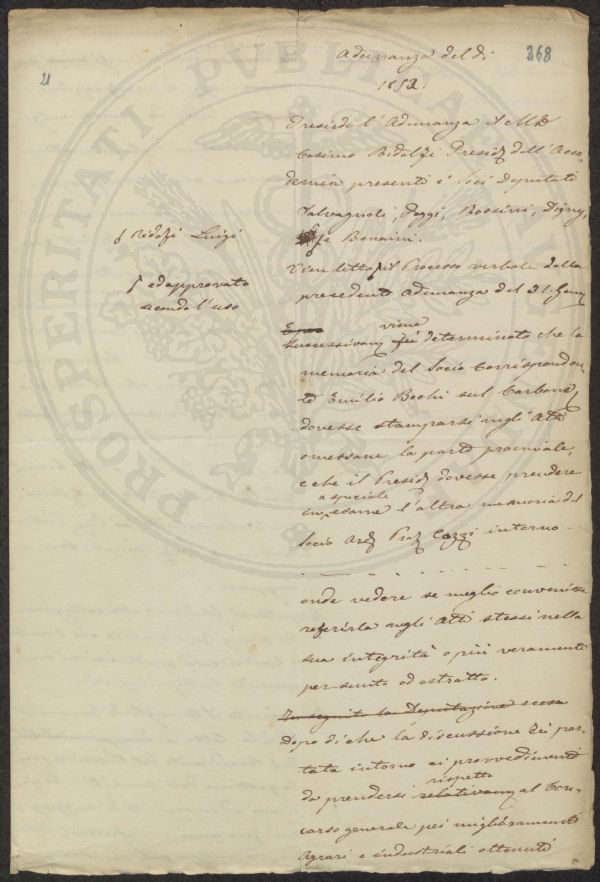 Adunanza del dì
368
21
1852.
Presiede l'Adunanza il Mse
Cosimo Ridolfi Presid. dell'Acca-
demia presenti i Soci Deputati
Salvagnoli, Poggi, Rossini, Digny,
e Bonaini.
ſ Ridolfi Luigi
Vien letto ſ il Processo verbale della
precedente Adunanza del 31. Genn.
ſ ed approvato
secondo l'uso
Successivam. viene determinato che la
memoria del Socio Corrisponden-
te Emilio Bechi sul Carbone,
dovesse stamparsi negli Atti
omessane la parte proemiale,
e che il Presid. dovesse prendere
in speciale esame l'altra memoria del
Socio Ord. Prof. Cozzi intorno -
. - . - - - . . . - - - -
onde vedere se meglio convenisse
referirla negli Atti stessi nella
sua integrità o più veramente
per sunto od estratto.
In seguito la Deputazione scese
Dopo di che la discussione si è por-
tata intorno ai provvedimenti
da prendersi relativam. rispetto al Con-
corso generale pei miglioramenti
Agrari e industriali ottenuti
PROSPERITATI PVBLICAE